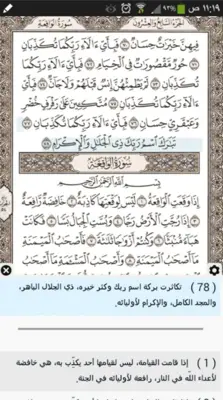 ١١:١٩ ص
٩٢%
الجزء السابع والعشرون
سورة الواقعة
فِيهِنَّ خَيْرَاتٌ حِسَانٌ ۝ فَبِأَيِّ آلَاءِ رَبِّكُمَا تُكَذِّبَانِ
۝ حُورٌ مَّقْصُورَاتٌ فِي الْخِيَامِ ۝ فَبِأَيِّ آلَاءِ رَبِّكُمَا
تُكَذِّبَانِ ۝ لَمْ يَطْمِثْهُنَّ إِنسٌ قَبْلَهُمْ وَلَا جَانٌّ ۝ فَبِأَيِّ آلَاءِ
رَبِّكُمَا تُكَذِّبَانِ ۝ مُتَّكِئِينَ عَلَىٰ رَفْرَفٍ خُضْرٍ
وَعَبْقَرِيٍّ حِسَانٍ ۝ فَبِأَيِّ آلَاءِ رَبِّكُمَا تُكَذِّبَانِ ۝
تَبَارَكَ اسْمُ رَبِّكَ ذِي الْجَلَالِ وَالْإِكْرَامِ
سُورَةُ الْوَاقِعَةِ
بِسْمِ اللَّهِ الرَّحْمَٰنِ الرَّحِيمِ
إِذَا وَقَعَتِ الْوَاقِعَةُ ۝ لَيْسَ لِوَقْعَتِهَا كَاذِبَةٌ ۝ خَافِضَةٌ رَّافِعَةٌ
۝ إِذَا رُجَّتِ الْأَرْضُ رَجًّا ۝ وَبُسَّتِ الْجِبَالُ بَسًّا ۝ فَكَانَتْ
هَبَاءً مُّنبَثًّا ۝ وَكُنتُمْ أَزْوَاجًا ثَلَاثَةً ۝ فَأَصْحَابُ الْمَيْمَنَةِ
مَا أَصْحَابُ الْمَيْمَنَةِ
(78) تكاثرت بركة اسم ربك وكثر خيره، ذي الجلال الباهر،
والمجد الكامل، والإكرام لأوليائه.
(1) إذا قامت القيامة، ليس لقيامها أحد يكذِّب به، هي خافضة
لأعداء الله في النار، رافعة لأوليائه في الجنة.